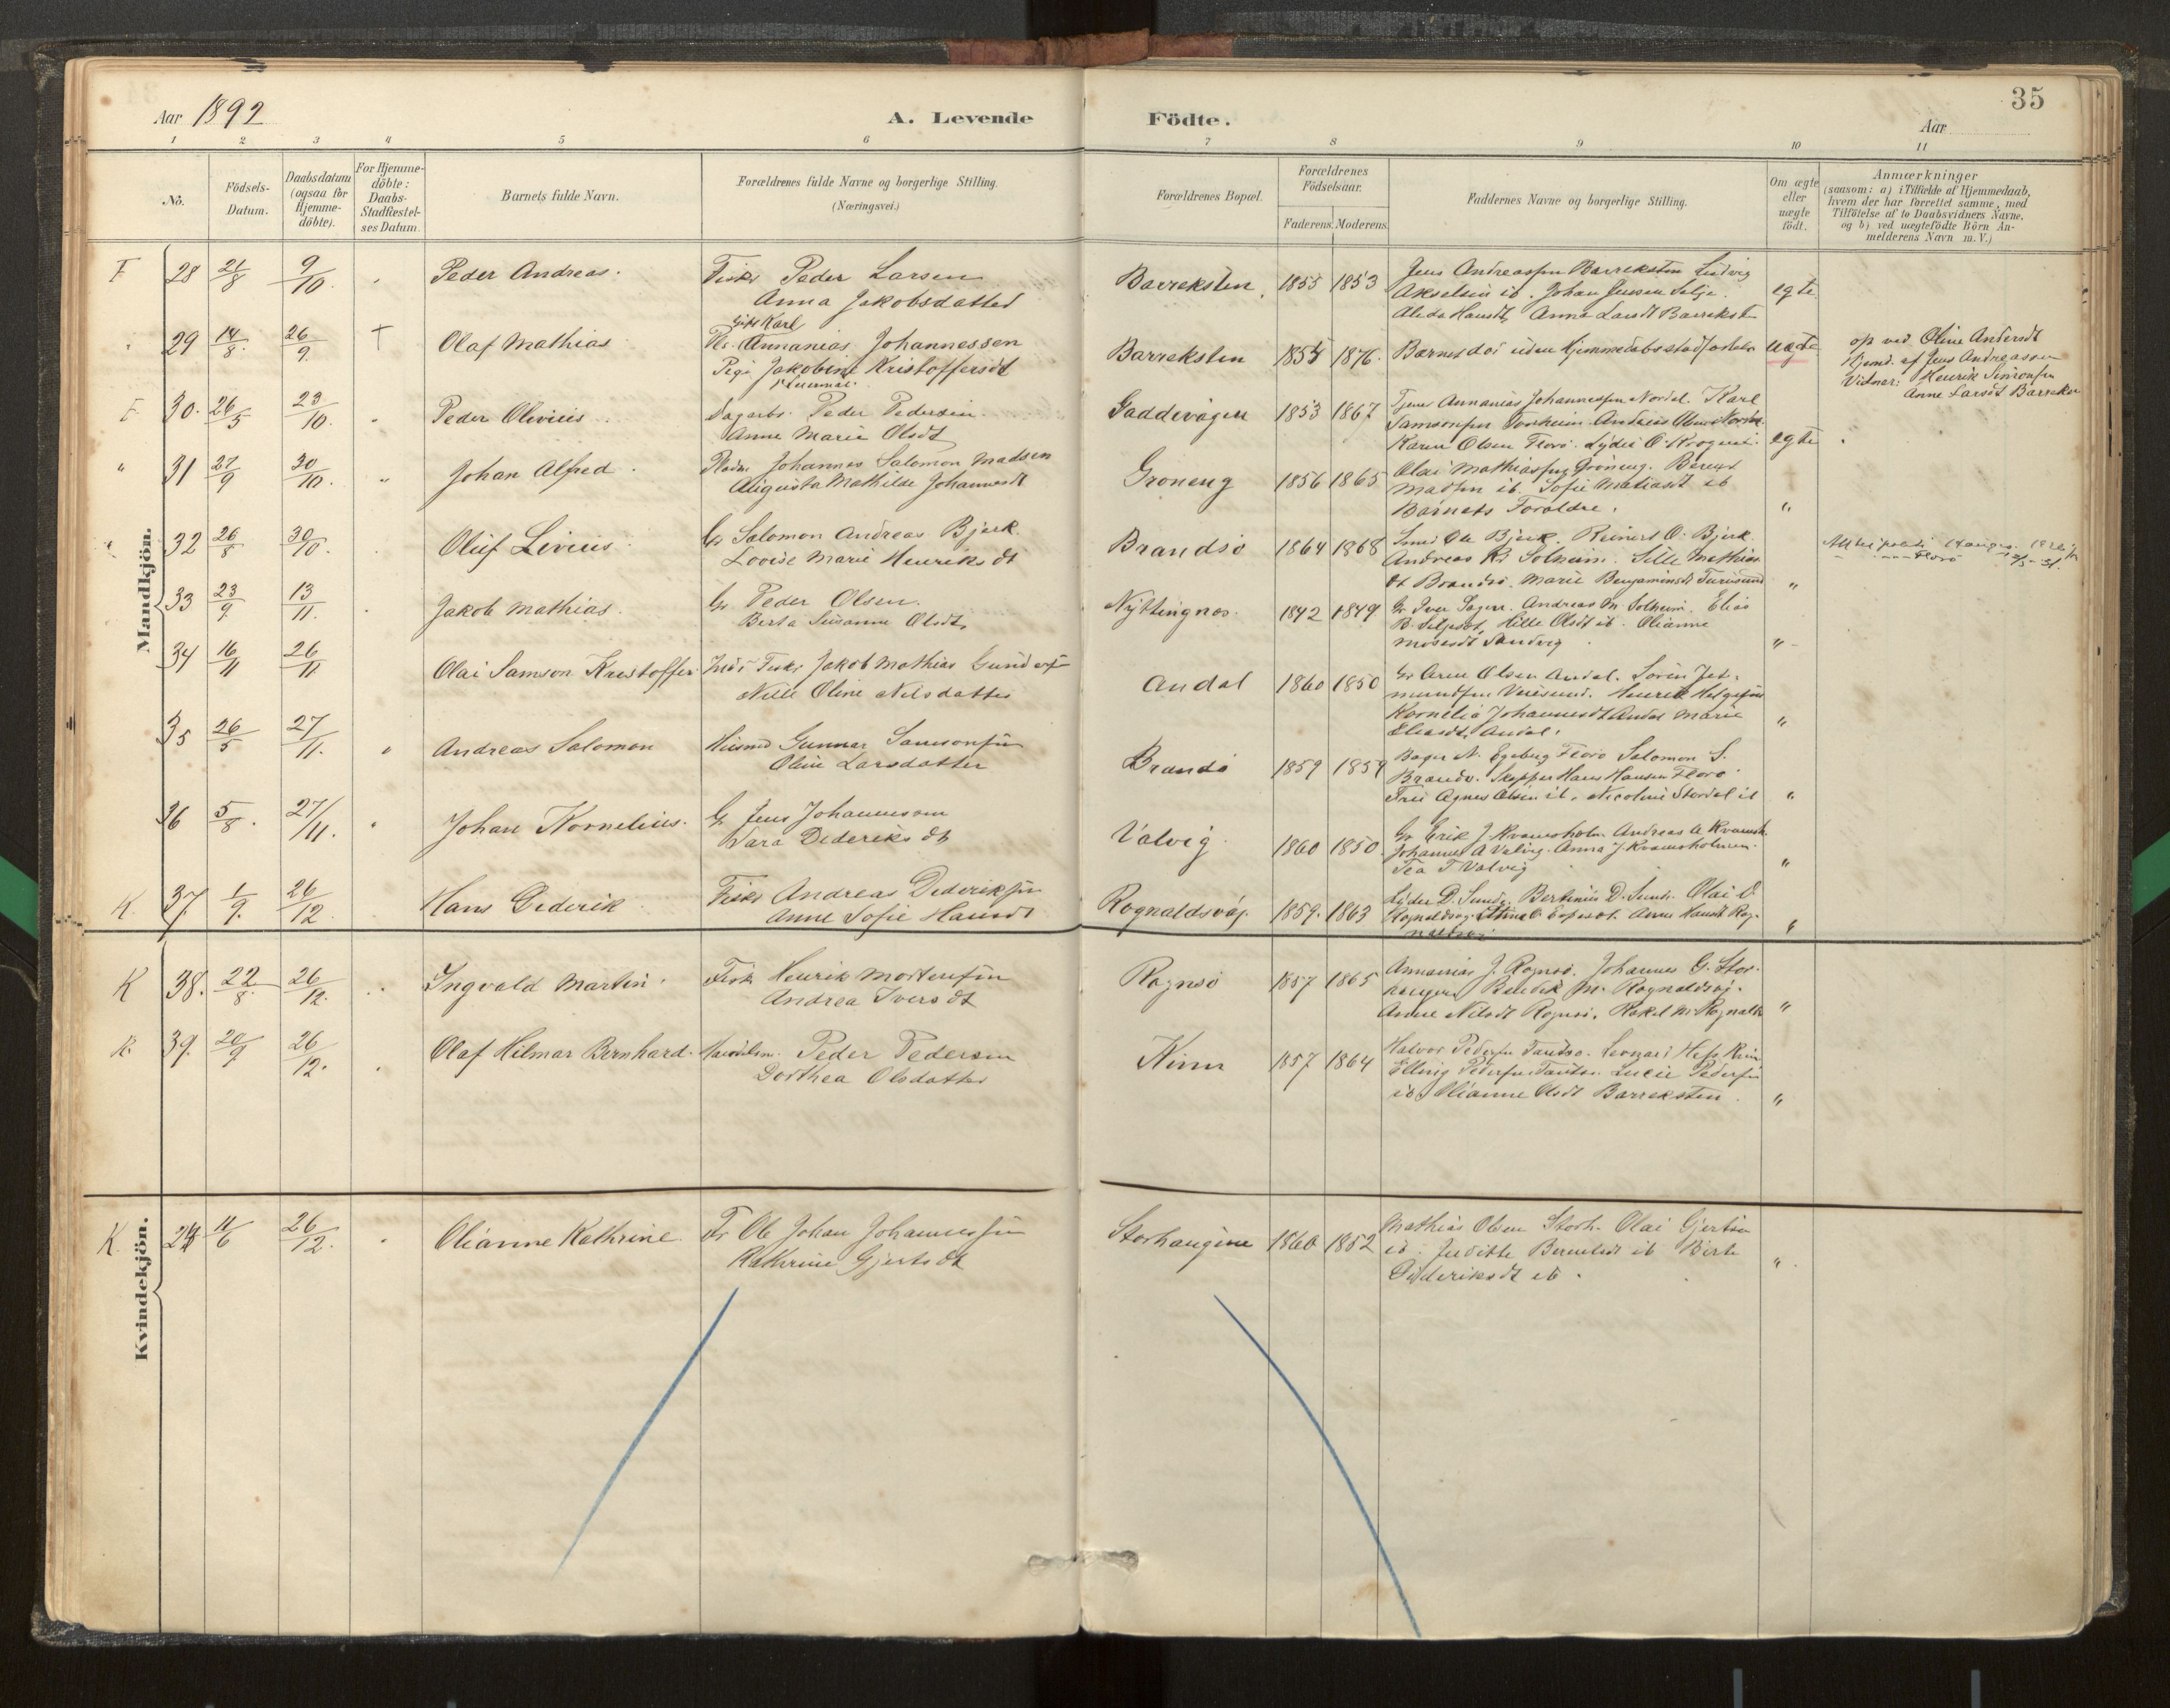 35
Aar 1892
A. Levende Födte.
Aar
1 2 3 4 5 6 7 8 9 10 11
No.
Födsels-Datum.
Daabsdatum (ogsaa for Hjemme-döbte).
For Hjemme-döbte: Daabs-Stadfæstel-ses Datum.
Barnets fulde Navn.
Forældrenes fulde Navne og borgerlige Stilling.
(Næringsvei.)
Forældrenes Bopæl.
Forældrenes Födselsaar.
Faderens. Moderens.
Faddernes Navne og borgerlige Stilling.
Om ægte eller uægte födt.
Anmærkninger
(saasom: a) i Tilfælde af Hjemmedaab,
hvem der har forrettet samme, med
Tilföielse af to Daabsvidners Navne,
og b) ved uægtefödte Börn An-
melderens Navn m. V.)
Mandkjön.
F 28 21/8 9/10 Peder Andreas.
Fisker Peder Larsen
Anna Jakobsdatter
Barreksten 1855 1853
Jens Andreassen Barreksten Ludvig
Akselsen ib. Johan Jenssen Selje.
Alida Hansdt, Anna Larsdt Barrekst
egte
" 29 14/8. 26/9 † Olaf Mathias
Gift Karl
Annanias Johannessen
Pige Jakobine Kristoffersdt
Barreksten 1855 1876.
Barnet død uden Hjemmedaabsstadfæstelse
uegte
op ved Oline Andersdt
Hjemd. af Jens Andreassen
Vidner: Henrik Simonsen
Anne Larsdt Barrekst
F 30. 26/5 23/10 Peder Olivius
Dagarb. Peder Pedersen.
Anne Marie Olsdt
Gaddevågen 1853 1867
Tjener Annanias Johannessen Nordal. Karl
Samsonsen Torsheim. Andreas Olsen Nordal
Karen Olsen Florö. Lydia O.
egte
" 31 27/9 30/10. " Johan Alfred.
Pladsm. Johannes Salomon Madsen
Augusta Mathilde Johannesdt
Groneng 1856 1865
Olai Mathiassen Groneng. Berent
Madsen ib. Sofie Matiasdt ib
Barnets Forældre.
"
32 26/8 30/10 Oluf Livius
Gr Salomon Andreas Bjerk
Lovise Marie Henriksdt
Brandsö 1864 1868
Smed Ole Bjerk. Reinert O. Bjerk.
Andreas Kr Solheim. Sille Mathias
dt Brandsö. Marie Benjaminsdt
"
33 23/9 13/11. Jakob Mathias.
Gr Peder Olsen.
Berta Susanne Olsdt,
Nyttingnes. 1842 1849
Gr Iver Andreas M. Solheim. Elias
B. Hille Olsdt ib. Olianne
Mosesdt Sandvig
"
34 16/11 26/11 Olai Samson Kristoffer
Inds Fisker Jakob Mathias
Nille Oline Nilsdatter
Andal 1860 1850
Gr Arne Olsen Andal. Sören Jet-
mundsen Henrik Helgesen
Kornelia Johannesdt Andal Marie
Eliasdt, Andal.
"
35 26/5 27/11. " Andreas Salomon
Husmd Gunnar Samsonsen
Oline Larsdatter
Brandsö 1859 1859
Bager N. Egeberg Florö Salomon S.
Brandsö. Skipper Hans Hansen Florö
Fru Agnes Olsen ib. Nicoline Stordal ib
"
36 5/8. 27/11. Johan Kornelius.
G Jens Johannessen
Sara Dideriksdt
Valvig 1860 1850.
Gr Erik J. Kvamsholm Andreas A Kvamsh.
Johannes A Valvig. Anna J Kvamsholmen.
Tea T Valvig
"
K. 37. 1/9. 26/12 Hans Dederik
Fisker Andreas Dederiksen
Anne Sofie Hansdt
Rognaldsvåg. 1859. 1863
Lyder D. Bertinius D. Olai O.
Rognaldsvåg. Anne Hansdt Rog-
naldsvåg
"
K 38. 22/8. 26/12. Ingvald Martin.
Fisk Henrik Mortensen
Andrea Iversdt
Rognsö 1857 1865
Annanias J. Rognsö. Johannes G. Stor-
haugen Bendik M. Rognaldsvåg.
Anne Nilsdt Rognsö. Rakel M. Rognalds
"
K. 39. 20/9 26/12. Olaf Hilmar Bernhard.
Handelsm. Peder Pedersen
Dorthea Olsdatter
Kinn 1857 1864
Halvor Pedersen Leonard Hess Kinn
Elling Pedersen Lucie Pedersen
ib. Olianne Olsdt Barreksten.
"
Kvindekjön.
K. 24 11/6 26/12. " Olianne Kathrine.
Fr Ole Johan Johannessen
Kathrine Gjertsdt
Storhaugene 1860 1852
Mathias Olsen Storh. Olai Gjertsen
ib. Judithe Berentsdt ib Birte
Dideriksdt ib.
"